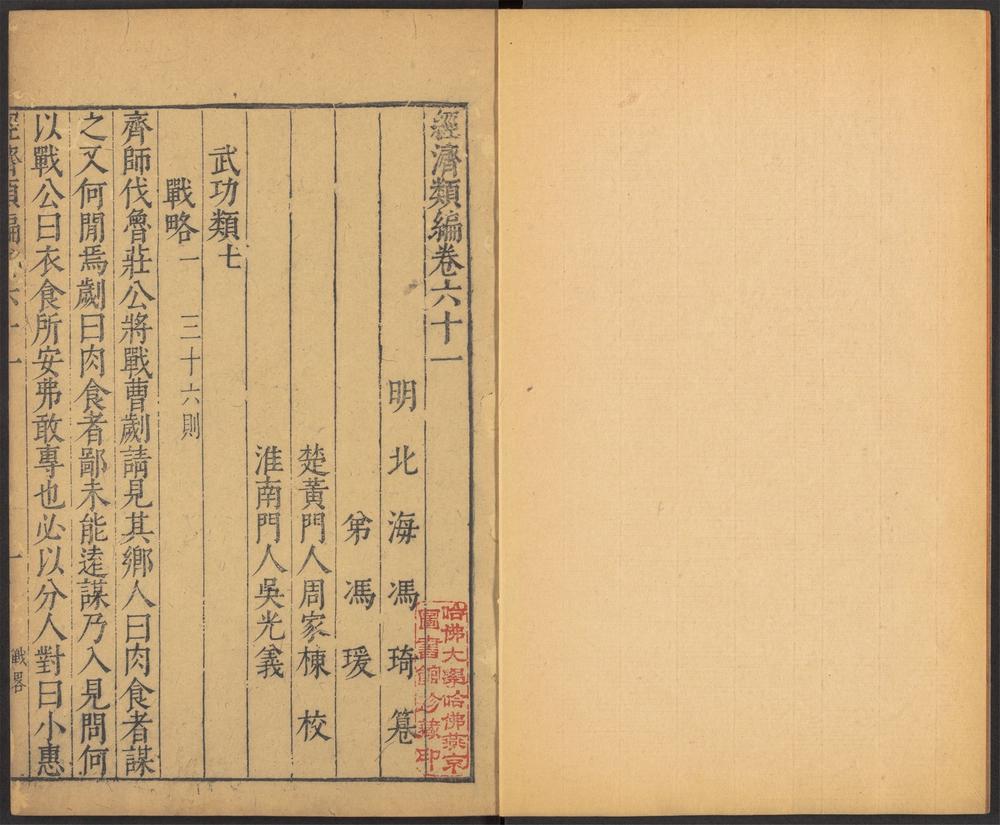 經濟類編卷六十一
明北海馮琦纂
弟馮瑗
楚黃門人周家棟校
淮南門人吳光義
武功類七
戰略一 三十六則
齊師伐魯莊公將戰曹劌請見其鄉人曰肉食者謀
之又何閒焉劌曰肉食者鄙未能遠謀乃入見問何
以戰公曰衣食所安弗敢專也必以分人對曰小惠
經濟類編 卷六十一 一 戰略
哈佛大學哈佛燕京
圖書館珍藏印